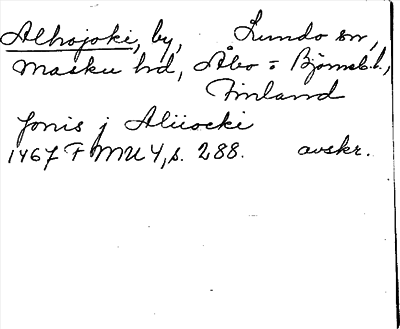 Alhojoki, by, Lundo sn,
Masku hd, Åbo = Björneb. l.,
Finland
Jonis j Aliiocki
1467 FMU 4, s. 288. avskr.